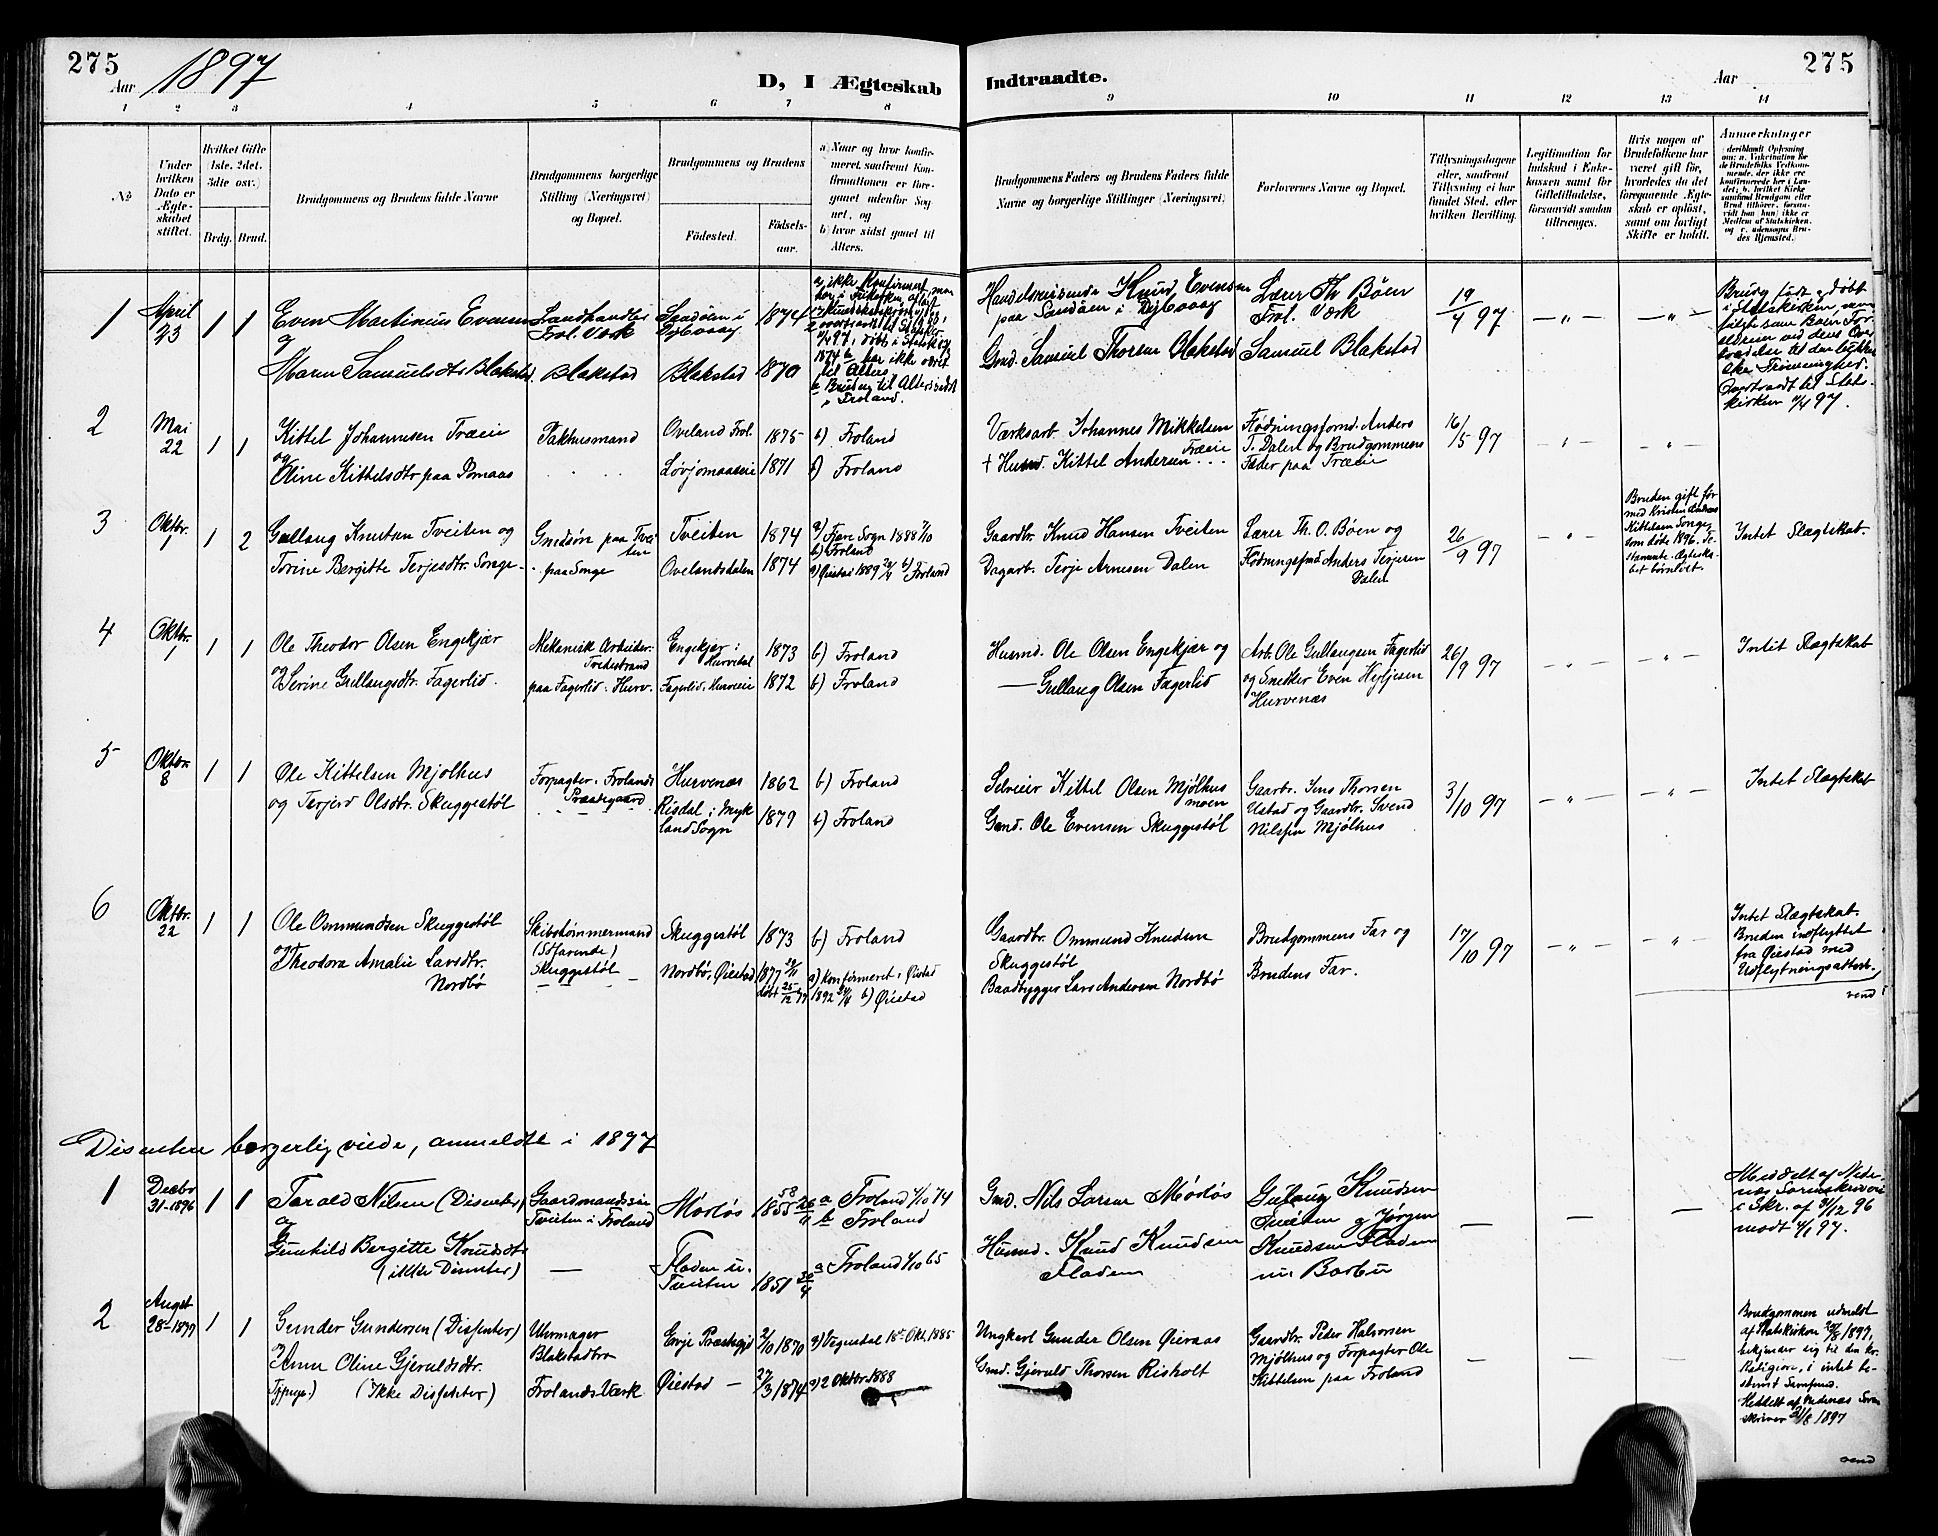 275
Aar 1897
D, I Ægteskab
Indtraadte.
Aar
275
1 2 3 4 5 6 7 8 9 10 11 12 13 14
No
Under
hvilken
Dato er
Ægte-
skabet
stiftet.
Hvilket Gifte
(1ste, 2det,
3die osv.)
Brdg. Brud.
Brudgommens og Brudens fulde Navne
Brudgommens borgerlige
Stilling (Næringsvei)
og Bopæl.
Brudgommens og Brudens
Fødested.
Fødsels-
aar.
a) Naar og hvor konfir-
meret, saafremt Kon-
firmationen er fore-
gaaet udenfor Sog-
net, og
b) hvor sidst gaaet til
Alters.
Brudgommens Faders og Brudens Faders fulde
Navne og borgerlige Stillinger (Næringsvei)
Forlovernes Navne og Bopæl.
Tillysningsdagene
eller, saafremt
Tillysning ei har
fundet Sted, efter
hvilken Bevilling.
Legitimation for
Indskud i Enke-
kassen samt for
Giftetilladelse,
forsaavidt saadan
tiltrænges.
Hvis nogen af
Brudefolkene har
været gift før,
hvorledes da det
foregaaende Ægte-
skab er opløst,
samt om lovligt
Skifte er holdt.
Anmerkninger
1 April 23 1 1
Even Martinus Evensen
og
Maren Samuelsdtr Blakstad
Landhandler
Frol. Værk
Blakstad
Sandøen i
Dybvaag
Blakstad
1874
1870
Handelsreisende Knud Evensen
paa Sandøen i Dybvaag
Gmd. Samuel Thorsen Blakstad
Lærer Th Bøen
Frol. Værk
Samuel Blakstad
19/4 97
— „ —
— „ —
kirken 4/4 97.
2 Mai 22 1 1
Kittel Johannesen Træen
og
Oline Kittelsdtr paa Bomaas
Pakhusmand
Oveland Frol.
Løvjomaaseie
1875
1871
b) Froland
b) Froland
Værksarb. Johannes Mikkelsen
Træeie
+ Husmd. Kittel Andersen . . .
Flødningsformd. Anders
T. Dalen og Brudgommens
Fader paa Træeie
16/5 97
3 Oktbr. 1 1 2
Gullaug Knutsen Tveiten og
Torine Bergitte Terjesdtr. Songe
Gmdsøn paa Tvei
ten
paa Songe
Tveiten
Ovelandsdalen
1874
1874
a) Fjære Sogn 1888 7/10
b) Froland
a) Øiestad 1889 b) Froland
Gaardbr. Knud Hansen Tveiten
Dagarb. Terje Arnesen Dalen
Lærer Th. O. Bøen og
Flødningsfmd Anders Terjesen
Dalen
26/9 97
Bruden gift før
med Kristen Andreas
Kittelsen Songe
som døde 1896. Te-
stamente. Ægteska-
bet børnløst.
Intet Slægtskab.
4 Oktbr. 1 1 1
Ole Theodor Olsen Engekjær
og Serine Gullaugsdtr. Fagerlid.
Mekanisk Arbeider.
Tvedestrand
paa Fagerlid. Hurv.
Engekjær i
Hurvedal
Fagerlid, Hurveie
1873
1872
b) Froland
b) Froland
Husmd. Ole Olsen Engekjær og
— Gullaug Olsen Fagerlid
Arb. Ole Gullaugsen Fagerlid
og Snedker Even Hyljesen
Hurvenæs
26/9 97
— „ —
— „ —
Intet Slægtskab
5 Oktbr. 8 1 1
Ole Kittelsen Mjølhus
og Terjerd Olsdtr. Skuggestøl
Forpagter. Frolands
Præstegaard
Hurvenæs
Risdal i Myk
land Sogn
1862
1879
b) Froland
b) Froland
Selveier Kittel Olsen Mjølhus
moen
Gmd. Ole Evensen Skuggestøl
Gaarbr. Jens Thorsen
Ustad og Gaardbr. Svend
Nilssen Mjølhus
3/10 97
— „ —
— „ —
Intet Slægtskab
6 Oktbr. 22 1 1
Ole Ommundsen Skuggestøl
og Theodora Amalie Larsdtr.
Nordbø
Skibstømmermand
(Søfarende)
Skuggestøl
Skuggestøl
Nordbø, Øiestad
1873
1877
døbt 25/12 77
b) Froland
a) Konfirmeret i Øiestad
1892 b) Øiestad
Gaardbr. Ommund Knudsen
Skuggestøl
Baadbygger Lars Andersen Nordbø
Brudgommens Far og
Brudens Far.
17/10 97
— „ —
— „ —
Intet Slægtskab.
Bruden indflyttet
fra Øiestad med
Udflytningsattest.
vend
Dissentere borgerlig viede, anmeldte i 1897
1 Decbr 31-1896 1 1
Tarald Nilsen (Dissenter)
og
Gunhild Bergitte Knudsdtr
(ikke Dissenter)
Gaardmandssøn
Tveiten i Froland
—
Mørløs
Fladen u.
Tveiten
58
1855 26/11
1851 30/4
a Froland 4/10 74
b Froland
a Froland 1/10 65
Gmd. Nils Larsen Mørløs
Husmd. Knud Knudsen
Fladen
Gullaug Knudsen
Tveiten og Jørgen
Knudsen Fladen
nu Barbu
—
—
—
Meddelt af Nede-
næs Sorenskriveri
i Skr. af 31/12 96
modt 4/1 97.
2 Augst 28-1897 1 1
Gunder Gundersen (Dissenter)
og
Anne Oline Gjeruldsdtr.
(Ikke Dissenter)
Uhrmager
Blakstadbro
Frolands Værk
Evje Præstegjd
Øiestad —
2/10 1870
27/3 1874
a) Vegusdal 18de Okt. 1885
a) 2 Oktbr. 1888
Ungkarl Gunder Olsen Øieraas
Gmd. Gjeruld Thorsen Risholt
Gaardbr. Peder Halvorsen
Mjølhus og Forpagter Ole
Kittelsen paa Froland
—
—
—
Brudgommen udmeldt
af Statskirken 20/8 1897,
bekjender sig til den kr.
Religion, i intet be-
stemt Samfund.
Meddelt af Nedenæs Soren
skriver 31/8 1897
vend